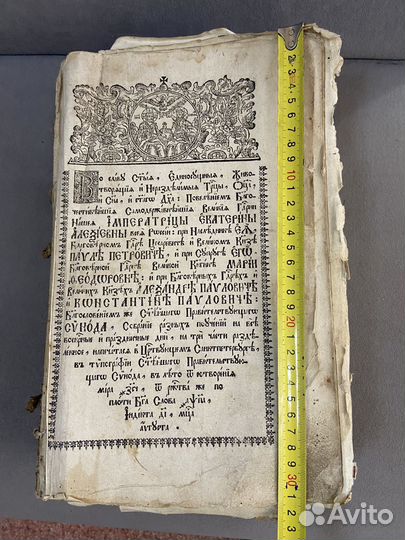 Во славу Ст҃ыѧ, Единосꙋщныѧ, Живо
творѧщїѧ и Нераздѣлимыѧ Трⷪ҇цы, Ѻц҃а и
Сн҃а, и ст҃агѡ Дх҃а: Повелѣнїемъ Благо
честивѣйшїѧ Самодержавнѣйшїѧ Великїѧ Гдⷭ҇рни
Нашеѧ ІМПЕРАТРИЦЫ ЕКАТЕРИНЫ
АЛЕѮІЕВНЫ всеѧ рѡссїи: при Наслѣдникѣ ЕѦ,
Благовѣрномъ Гдⷭ҇рѣ Цесаревичѣ и Великомъ Кнѕѣ
ПАУЛѢ ПЕТРОВИЧѢ, и при Сꙋпрꙋгѣ ЕГѠ,
Благовѣрной Гдⷭ҇рнѣ Великой Кнѧгинѣ МАРІИ
ѲЕОДѠРОВНѢ: и при Благовѣрныхъ Гдⷭ҇рехъ и
Великихъ Кнѕехъ АЛЕѮАНДРѢ ПАУЛОВИЧѢ
и КОНСТАНТІНѢ ПАУЛОВИЧѢ:
Благословенїемъ же Ст҃ѣйшагѡ Правителствꙋющагѡ
СѴНОДА, Собранїе разныхъ поꙋченїй на всѣ
воскрⷭ҇ные и праздничные дни, на три части раздѣ
ленное, напечатасѧ в Црⷭ҇твꙋющемъ Санктпетербꙋргѣ,
въ тѵпографїи Ст҃ѣйшагѡ Правителствꙋю
щагѡ Сѵнода, въ лѣто ѿ сотворенїѧ
мїра ѿ ржⷭ҇тва же по
плоти Бг҃а Слова
Індїкта мцⷭ҇а
аѵгꙋста
2 3 4 5 6 7 8 9 10 1 2 3 4 5 6 7 8 9 20 1 2 3 4 5 6 7 8 9 30 1 2 3
Avito